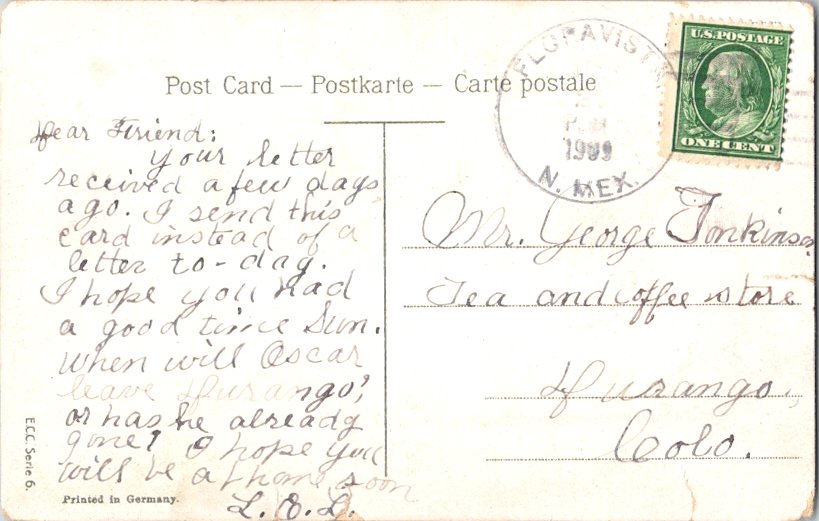 Post Card — Postkarte — Carte postale
FLORAVISTA
1909
N. MEX.
U.S. POSTAGE
ONE CENT
Dear Friend:
Your letter
received a few days
ago. I send this
card instead of a
letter to-day.
I hope you had
a good time Sun.
When will Oscar
leave Durango?
or has he already
gone? I hope you
will be at home soon
L. E. L.
Mr. George Tonkinson
Tea and coffee store
Durango,
Colo.
E.C.C. Serie 6.
Printed in Germany.